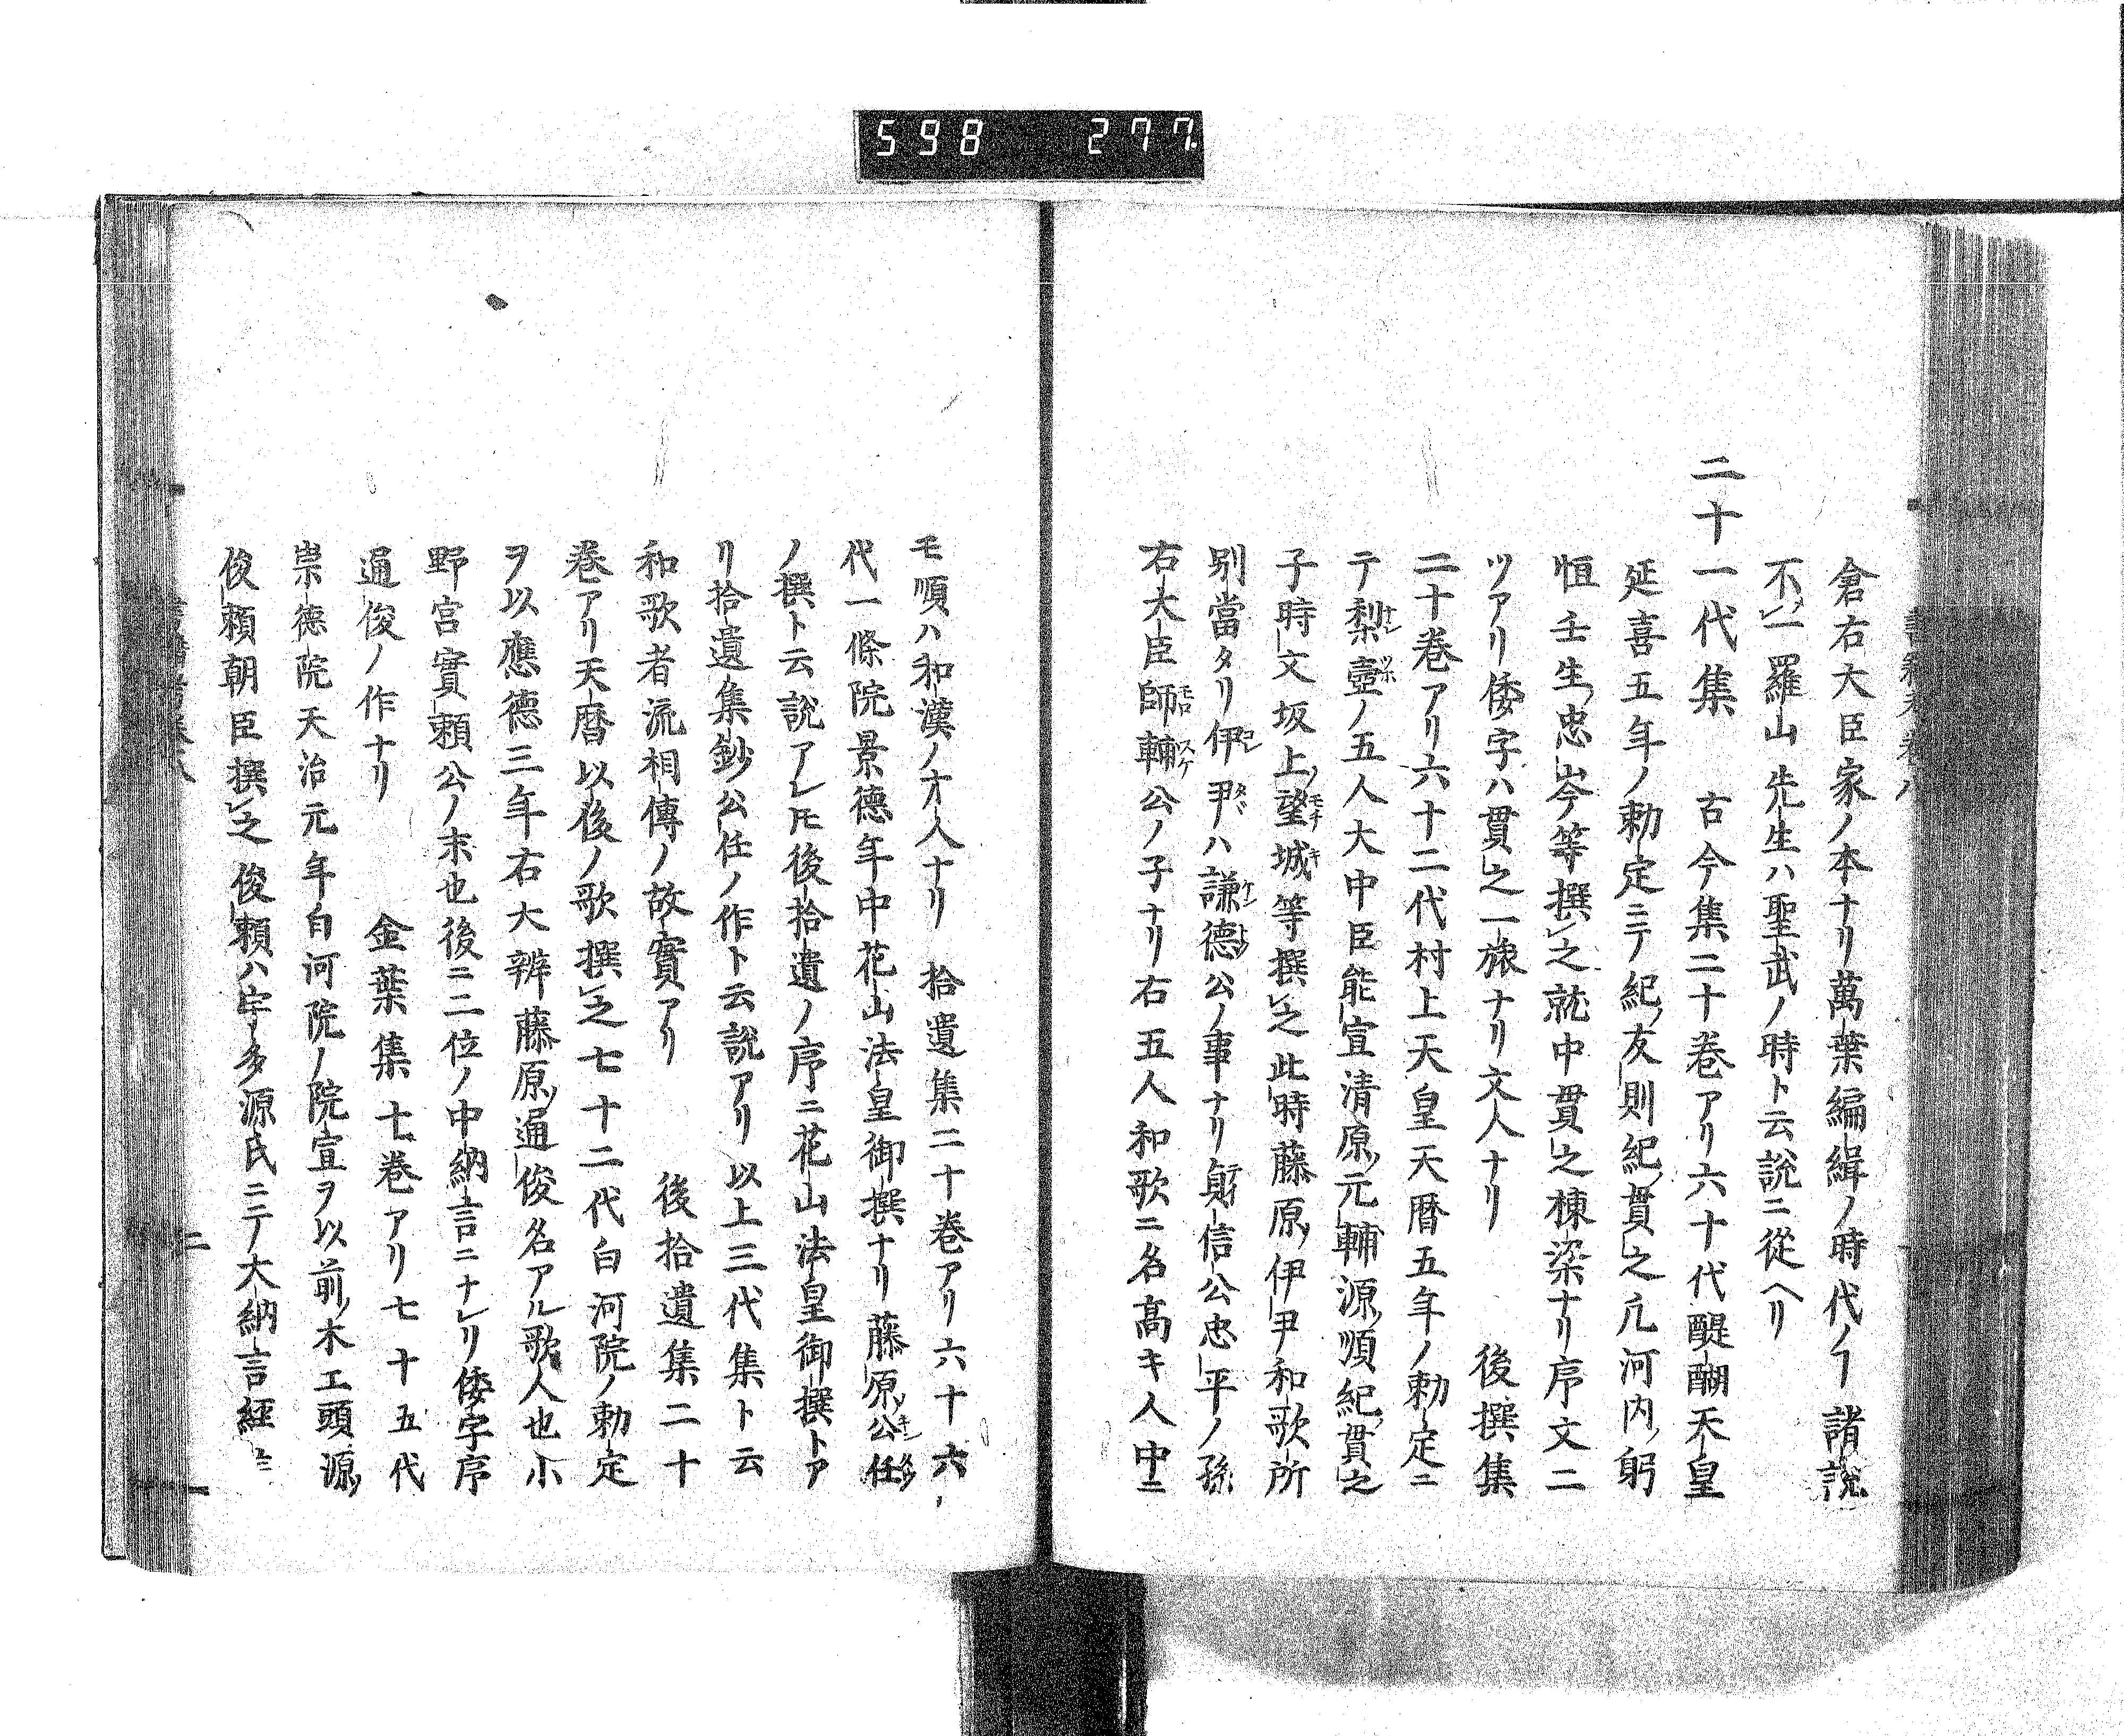 598 277.
倉右大臣家ノ本ナリ萬葉編緝ノ時代ノヿ諸說
不一羅山先生ハ聖武ノ時ト云說ニ從ヘリ
二十一代集 古今集二十巻アリ六十代醍醐天皇
延喜五年ノ勅定ニテ紀友則紀貫之凢河内躬
恒壬生忠岑等撰之就中貫之棟梁ナリ序文二
ツアリ倭字ハ貫之一旅ナリ文人ナリ 後撰集
二十巻アリ六十二代村上天皇天暦五年ノ勅定ニ
テ梨壺ノ五人大中臣能宣清原元輔源順紀貫之
子時文坂上望城等撰之此時藤原伊尹和歌所
別當タリ伊尹ハ謙德公ノ事ナリ貞信公忠平ノ孫
右大臣師輔公ノ子ナリ右五人和歌ニ名高キ人中ニ
モ順ハ和漢ノオ人ナリ 拾遺集二十巻アリ六十六
代一條院景德年中花山法皇御撰ナリ藤原公任
ノ撰ト云說アレ𪜈後拾遺ノ序ニ花山法皇御撰トア
リ拾遺集鈔公任ノ作ト云說アリ以上三代集ト云
和歌者流相傳ノ故實アリ 後拾遺集二十
巻アリ天暦以後ノ歌撰之七十二代白河院ノ勅定
ヲ以應德三年右大辨藤原通俊名アル歌人也小
野宮實賴公ノ末也後ニ二位ノ中納言ニナレリ倭字序
通俊ノ作ナリ 金葉集七巻アリ七十五代
崇德院天治元年白河院ノ院宣ヲ以前木工頭源
俊賴朝臣撰之俊賴ハ宇多源氏ニテ大納言經
二